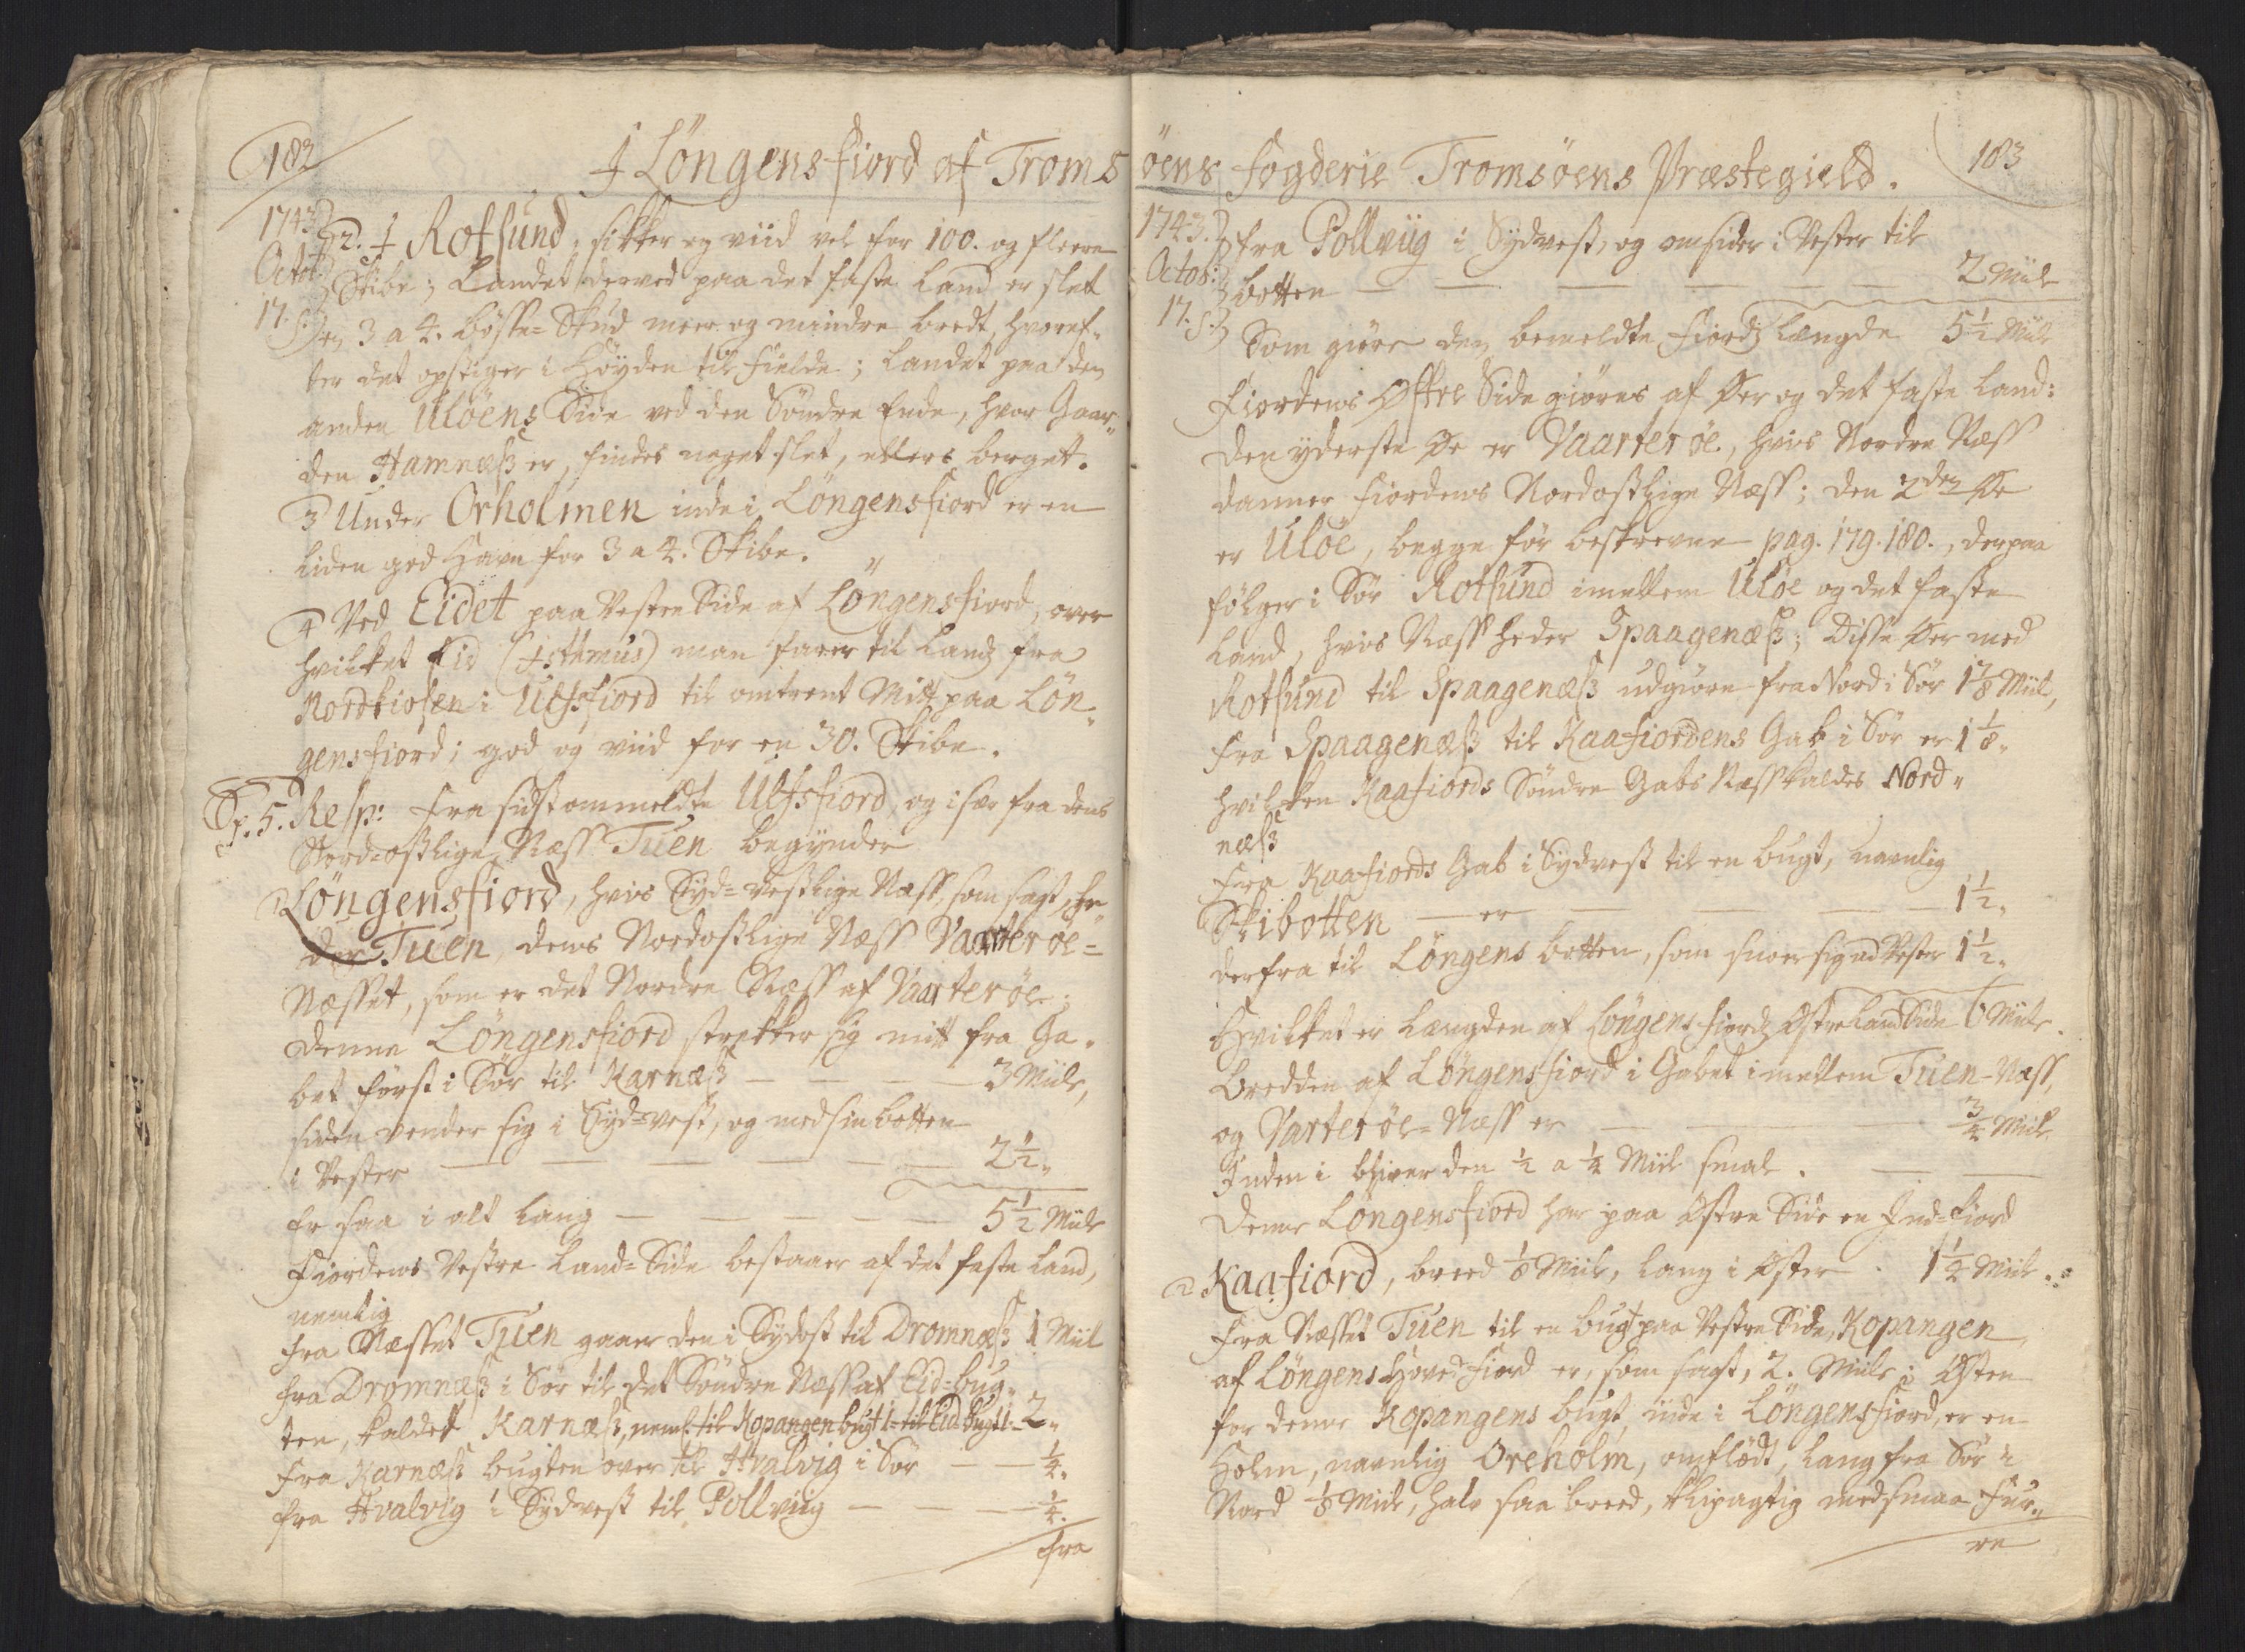 182
I Löngensfiord af Troms
1743
Octob:
17. S.
2. I Rotsund, sikker og viid vel for 100. og fleere
Skibe; Landet derved paa det faste Land er slet
en 3 a 4. bösse-Skud meer og mindre bredt, hvoref-
ter det opstiger i Höyden til fielde; Landet paa den
anden Ulöens Side ved den Söndre Ende, hvor Gaar-
den Hamnæss er, findes noget slet, ellers berget.
3 Under Orholmen inde i Löngensfiord er en
liden god Havn for 3 a 4. Skibe.
4 Ved Eidet paa Vestre Side af Löngensfiord, over
hvilket Eid (Isthmus) man farer til Landz fra
Nordkiosen i Ulfsfiord til omtrent Midt paa Lön-
gensfiord; god og viid for en 30. Skibe.
Sp. 5. Resp: Fra sidstommeldte Ulfsfiord, og især fra dens
Nord-ostlige Næss Tuen begynder
1 Löngensfiord, hvis Syd-vestlige Næss, som sagt, he-
der Tuen, dens Nordostlige Næss Vaarteröe-
Næsset, som er det Nordre Næss af Vaarteröe;
Denne Löngensfiord strekker sig mitt fra Ga-
bet först i Sör til Karnæss — — — 3 Miile,
siden vender sig i Syd-vest, og med sin botten
i Vester — — — — — 2 1/2 "
Er saa i alt lang — — — — 5 1/2 Miile
Fiordens Vestre Land-Side bestaaer af det faste Land,
nemlig
fra Næsset Tuen gaaer den i Sydost til Dromnæss 1 Miil
fra Dromnæss i Sör til det Söndre Næss af Eid-bug-
ten, kaldet Karnæss, neml: til Kopangen bugt 1- til Eid bugt 1- 2 "
Fra Karnæss bugten over til Hvalvig i Sör — — 1/4 "
fra Hvalvig i Sydvest til Pollviig — — — 1/4 "
fra
öens Fogderie Tromsöens Præstegield.
183
1743.
Octob:
17. S.
fra Pollviig i Sydvest, og omsider i Vester til
botten — — — — — 2 Miile
Som giöre den bemeldte Fiordz Længde 5 1/2 Miile
Fiordens Östre Side giöres af Öer og det faste Land:
Den yderste Öe er Vaarteröe, hvis Nordre Næss
danner Fiordens Nordostlige Næss; den 2den Öe
er Ulöe, begge för beskrevne pag. 179. 180., derpaa
fölger i Sör Rotsund imellem Ulöe og det faste
Land, hvis Næss heder Spaagenæss; Disse Öer med
Rotsund til Spaagenæss udgiöre fra Nord i Sör 1 7/8 Miil,
Fra Spaagenæss til Kaafiordens Gab i Sör er 1 1/8 "
hvilken Kaafiords Söndre Gabs Næss kaldes Nord-
næss
Fra Kaafiords Gab i Sydvest til en bugt, navnlig
Skibotten — er — — — 1 1/2 "
derfra til Löngens botten, som snoer sig ad Vester 1 1/2 "
Hvilket er Længden af Löngens Fiordz Östre Land Side 6 Miile.
Bredden af Löngensfiord i Gabet imellem Tuen-Næss,
og Varteröe-Næss er — — — 3/4 Miil
Inden i bliver den 1/2 a 1/4 Miil smal. — —
Denne Löngensfiord har paa Östre Side en Ind-fiord
2 Kaafiord, breed 1/8 Miil, lang i Öster . 1 1/4 Miil.
Fra Næsset Tuen til en bugt paa Vestre Side, Kopangen,
af Löngens Hoved Fiord er, som sagt, 2. Miile; Östen
for denne Kopangens bugt, inde i Löngensfiord, er en
Holm, navnlig Oreholm, omflödt, lang fra Sör i
Nord 1/8 Miil, halv saa breed, klipagtig med smaa Fur-
re